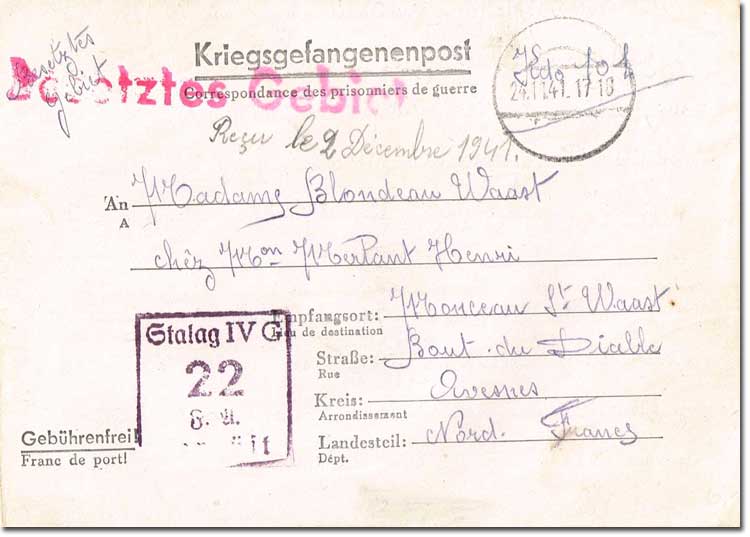 Besetztes
Gebiet
Besetztes Gebiet
Kriegsgefangenenpost
Correspondance des prisonniers de guerre
Kdo 404
24.11.41. 17-18
Reçu le 2 Décembre 1941.
An Madame Blondeau Waast
A
chêz Mon Merlant Henri
Empfangsort: Monceau St Waast
Lieu de destination
Straße: Bout du Diable
Rue
Kreis: Avesnes
Arrondissement
Landesteil: Nord. France
Dépt.
Stalag IV G
22
Gebührenfrei!
Franc de port!